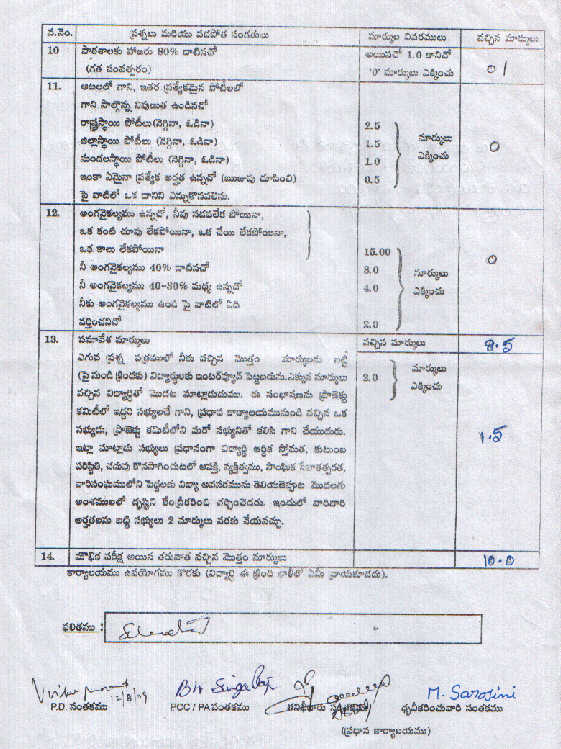 వ.నెం. ప్రశ్నలు మరియు పదపోత సంగతులు మార్కుల వివరములు వచ్చిన మార్కులు
10 పాఠశాలకు హాజరు 80% దాటినచో అయినచో 1.0 కానిచో 01
(గత సంవత్సరం) '0' మార్కులు ఎక్కించు
11. ఆటలలో గాని, ఇతర ప్రత్యేకమైన పోటీలలో
గాని పాల్గొన్న నిపుణత ఉండినచో
రాష్ట్రస్థాయి పోటీలు (నెగ్గినా, ఓడినా) 2.5 మార్కులు 0
జిల్లాస్థాయి పోటీలు (నెగ్గినా, ఓడినా) 1.5 ఎక్కించు
మండలస్థాయి పోటీలు (నెగ్గినా, ఓడినా) 1.0
ఇంకా ఏమైనా ప్రత్యేక అర్హత ఉన్నచో (ఋజువు చూపించి) 0.5
పై వాటిలో ఒక దానిని ఎన్నుకొనవలెను.
12. అంగవైకల్యము ఉన్నచో, నీవు నడవలేక పోయినా,
ఒక కంటి చూపు లేకపోయినా, ఒక చేయి లేకపోయినా,
ఒక కాలు లేకపోయినా 15.00 0
నీ అంగవైకల్యము 40% దాటినచో 8.0 మార్కులు
నీ అంగవైకల్యము 40-80% మధ్య ఉన్నచో 4.0 ఎక్కించు
నీకు అంగవైకల్యము ఉండి పై వాటిలో ఏది
వర్తించనిచో 2.0
13. సమావేశ మార్కులు వచ్చిన మార్కులు 8.5
ఎగువ ప్రశ్న పత్రములో నీకు వచ్చిన మొత్తం మార్కులను బట్టి మార్కులు
(పై నుండి క్రిందకు) విద్యార్థులకు ఇంటర్వ్యూస్ పెట్టబడును. ఎక్కువ మార్కులు 2.0 ఎక్కించు
వచ్చిన విద్యార్థితో మొదట మాట్లాడుదుము. ఈ సంభాషణను ప్రాజెక్టు
కమిటీలో ఇద్దరి సభ్యులచే గాని, ప్రధాన కార్యాలయమునుండి వచ్చిన ఒక
సభ్యుడు, ప్రాజెక్టు కమిటీలోని మరో సభ్యునితో కలిసి గాని చేయుదురు.
ఇట్లా మాట్లాడు సభ్యులు ప్రధానంగా విద్యార్థి ఆర్థిక స్తోమత, కుటుంబ 1.5
పరిస్థితి, చదువు కొనసాగించుటలో ఆసక్తి, వ్యక్తిత్వము, సాంఘిక సేవాతత్పరత,
అంశములలో దృష్టిని కేంద్రీకరించి చర్చించెదరు. ఇందులో వారివారి
అర్హతలను బట్టి సభ్యులు 2 మార్కులు వరకు వేయవచ్చు.
14. మౌఖిక పరీక్ష అయిన తరువాత వచ్చిన మొత్తం మార్కులు 10.0
కార్యాలయము ఉపయోగము కొరకు (విద్యార్థి ఈ క్రింది వాటిలో ఏమీ వ్రాయకూడదు).
ఫలితము : Selected
2/8/09 M. Sarojini
P.D. సంతకము PCC / PA సంతకము ధృవీకరించువారి సంతకము
(ప్రధాన కార్యాలయము)